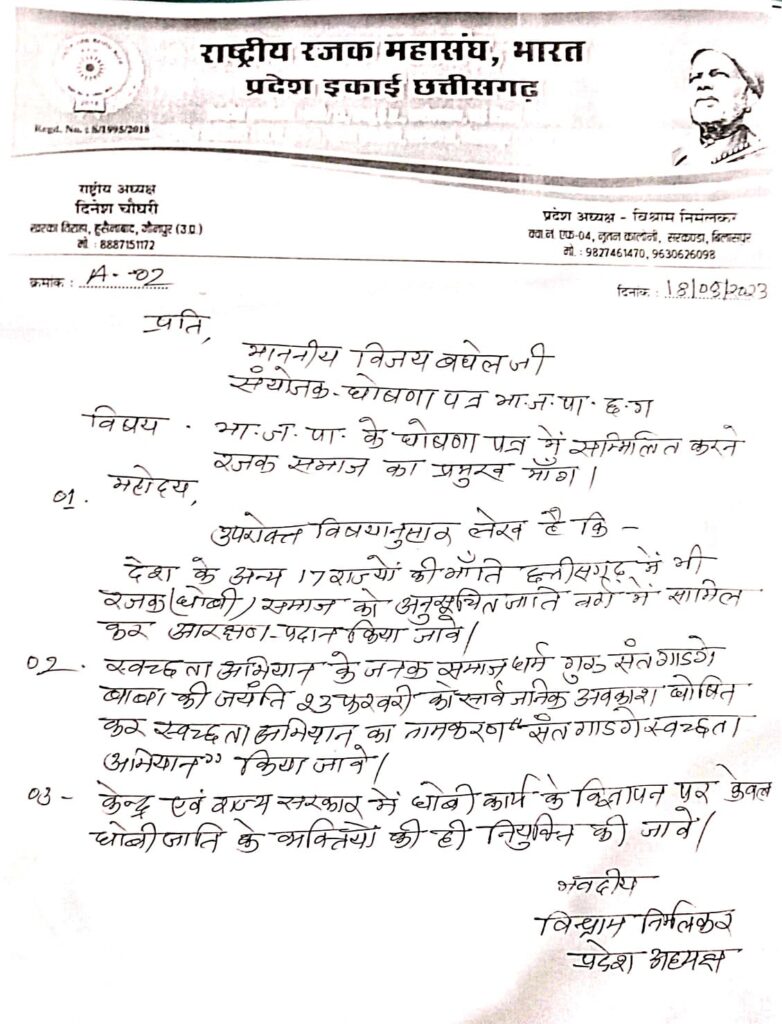 राष्ट्रीय रजक महासंघ, भारत
प्रदेश इकाई छत्तीसगढ़
Regd. No. : S/1995/2018
राष्ट्रीय अध्यक्ष
दिनेश चौधरी
खरका तिराहा, हुसेनाबाद, जौनपुर (उ.प्र.)
मो. : 8887151172
प्रदेश अध्यक्ष - विश्राम निर्मलकर
क्वा नं. एफ-04, नूतन कालोनी, सरकण्डा, बिलासपुर
मो. : 9827461470, 9630626098
क्रमांक : A-02
दिनांक : 18/09/2023
प्रति,
माननीय विजय बघेल जी
संयोजक-घोषणा पत्र भा.ज.पा. छ.ग
विषय - भा.ज.पा. के घोषणा पत्र में सम्मिलित करने
रजक समाज का प्रमुख माँग।
महोदय,
01.
उपरोक्त विषयानुसार लेख है कि -
देश के अन्य 17 राज्यों की भाँति छत्तीसगढ़ में भी
रजक (धोबी) समाज को अनुसूचित जाति वर्ग में सामिल
कर आरक्षण प्रदान किया जावे।
02. स्वच्छता अभियान के जनक समाज धर्म गुरु संत गाडगे
बाबा की जयंति 23 फरवरी का सार्वजनिक अवकाश घोषित
कर स्वच्छता अभियान का नामकरण "संत गाडगे स्वच्छता
अभियान" किया जावे।
03 - केन्द्र एवं राज्य सरकार में धोबी कार्य के विज्ञापन पर केवल
धोबी जाति के व्यक्तियों की ही नियुक्ति की जावे।
भवदीय
विश्राम निर्मलकर
प्रदेश अध्यक्ष